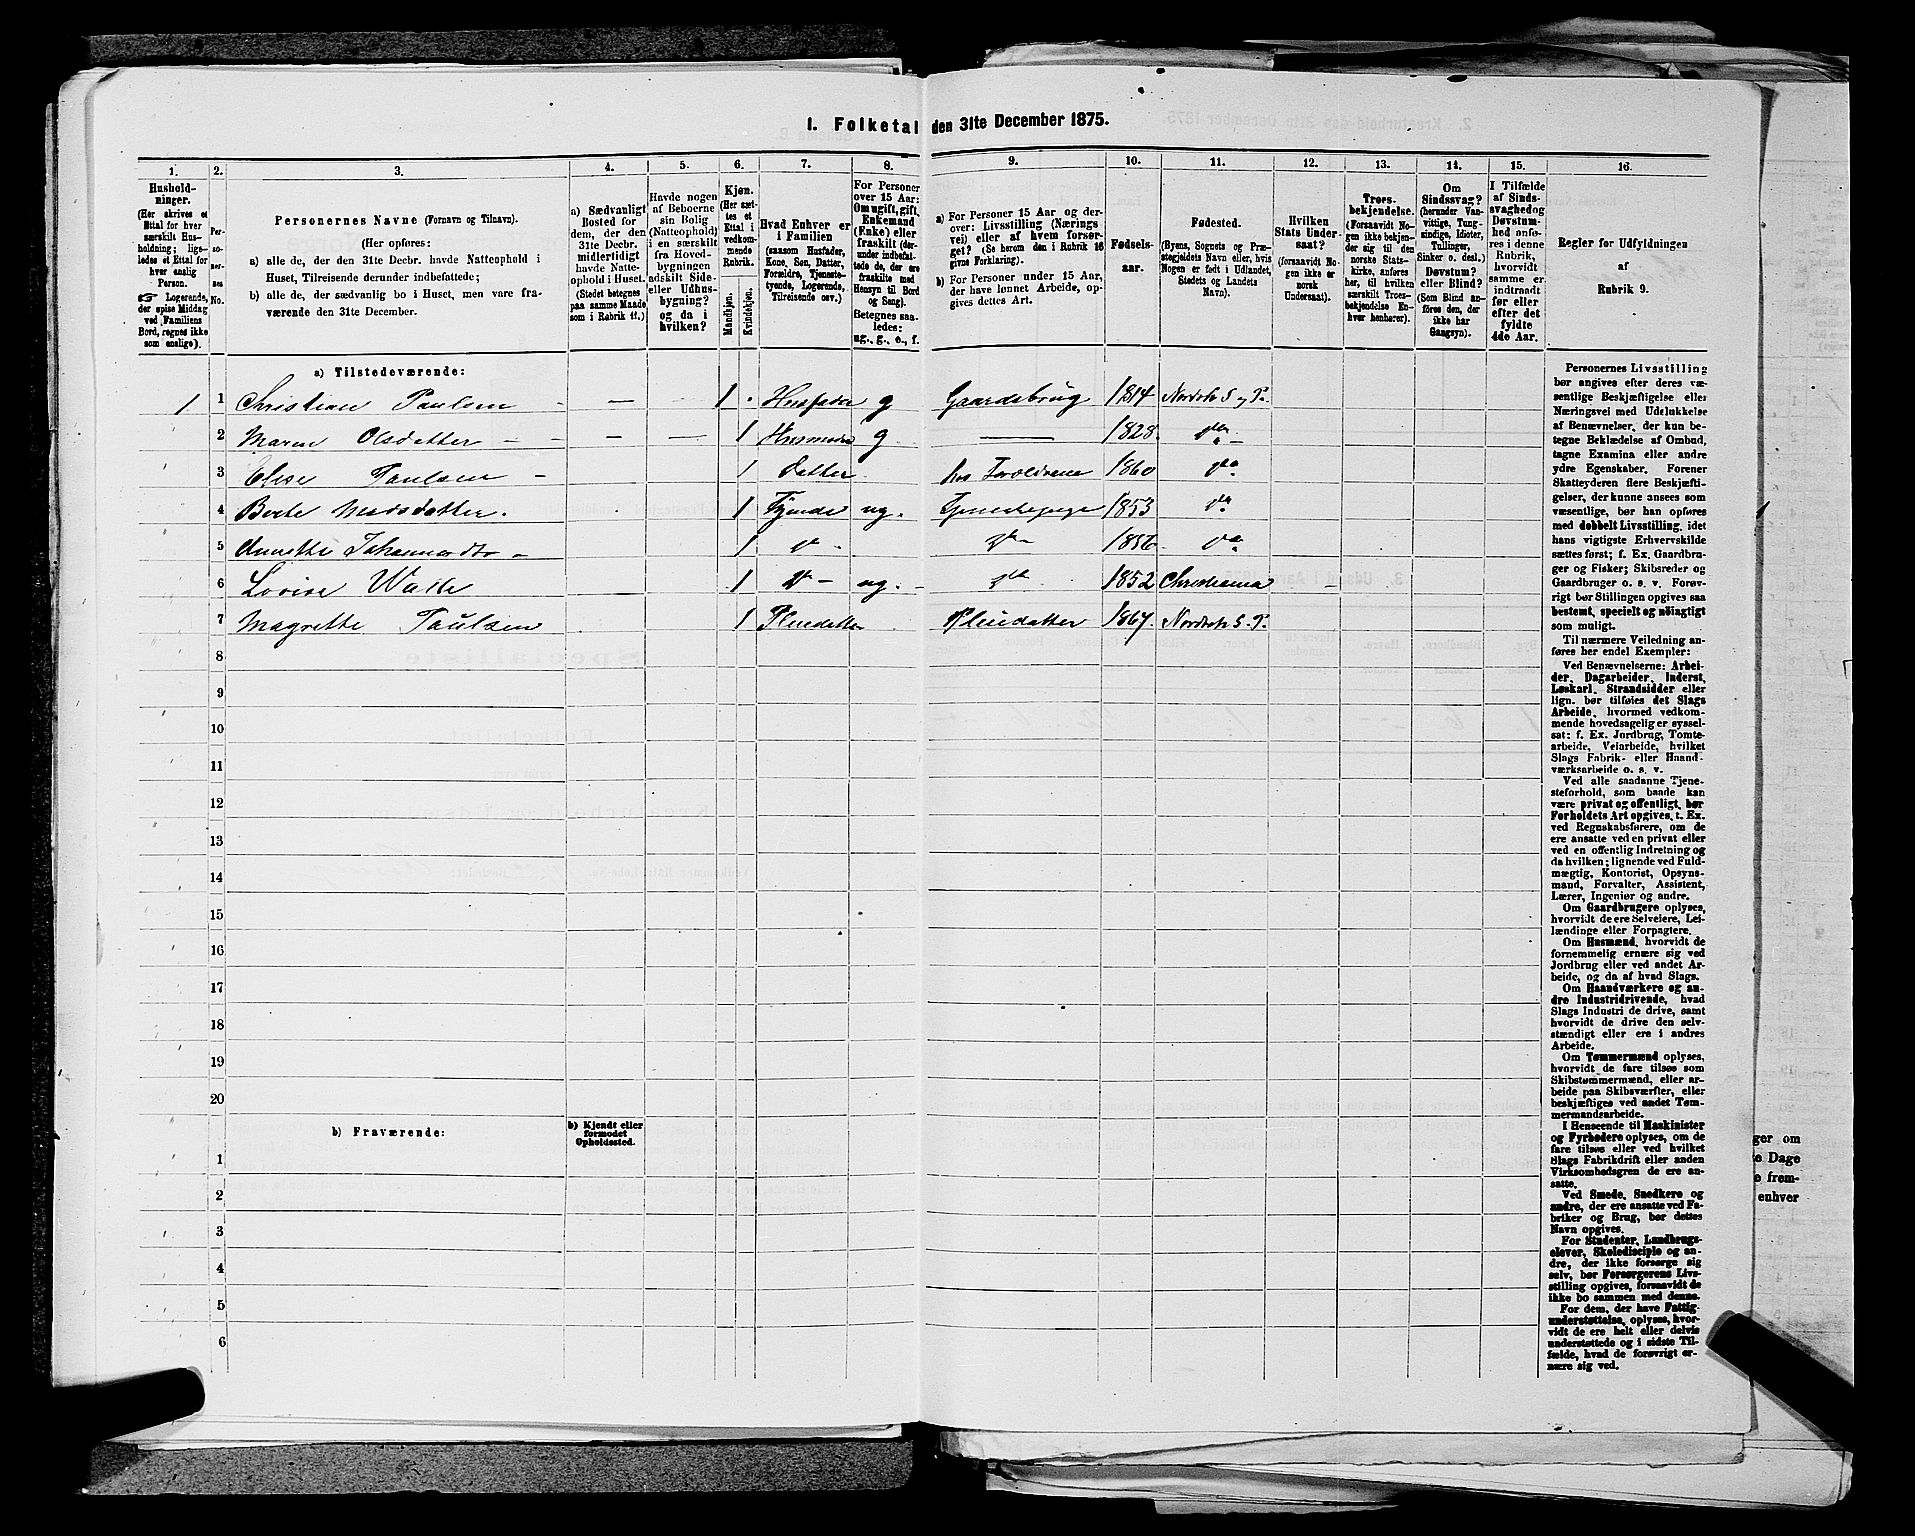 1. Folketal den 31te December 1875.
1. 2. 3. 4. 5. 6. 7. 8. 9. 10. 11. 12. 13. 14. 15. 16.
Hushold-
ninger.
(Her skrives et
Ettal for hver
særskilt Hus-
holdning; lige-
ledes et Ettal for
hver enslig
Person.
Logerende,
der spise Middag
ved Familiens
Bord, regnes ikke
som enslige).
Per-
so-
ner-
nes
No.
Personernes Navne (Fornavn og Tilnavn).
(Her opføres:
a) alle de, der den 31te Decbr. havde Natteophold i
Huset, Tilreisende derunder indbefattede;
b) alle de, der sædvanlig bo i Huset, men vare fra-
værende den 31te December.
a) Sædvanligt
Bosted for
dem, der den
31te Decbr.
midlertidigt
havde Natte-
ophold i Huset.
(Stedet betegnes
paa samme Maade
som i Rubrik 11.)
Havde nogen
af Beboerne
sin Bolig
(Natteophold)
i en særskilt
fra Hoved-
bygningen
adskilt Side-
eller Udhus-
bygning?
og da i
hvilken?
Kjøn.
(Her sæt-
tes et
Ettal i
vedkom-
mende
Rubrik.
Mandkjøn.
Kvindekjøn.
Hvad Enhver er
i Familien
(saasom Husfader,
Kone, Søn, Datter,
Forældre, Tjeneste-
tyende, Logerende,
Tilreisende osv.)
For Personer
over 15 Aar:
Om ugift, gift,
Enkemand
(Enke) eller
fraskilt (der-
under indbefat-
tede de, der ere
fraskilte med
Hensyn til Bord
og Seng).
Betegnes saa-
ledes:
ug., g., e., f.
a) For Personer 15 Aar og der-
over: Livsstilling (Nærings-
vei) eller af hvem forsør-
get? (Se herom den i Rubrik 16
givne Forklaring).
b) For Personer under 15 Aar,
der have lønnet Arbeide, op-
gives dettes Art.
Fødsels-
aar.
Fødested.
(Byens, Sognets og Præ-
stegjeldets Navn eller, hvis
Nogen er født i Udlandet,
Stedets og Landets
Navn).
Hvilken
Stats Under-
saat?
(forsaavidt No-
gen ikke er
norsk
Undersaat).
Troes-
bekjendelse.
(Forsaavidt No-
gen ikke bekjen-
der sig til den
norske Stats-
kirke, anføres
her, til hvilken
særskilt Troes-
bekjendelse En-
hver henhører).
Om
Sindssvag?
(herunder Van-
vittige, Tung-
sindige, Idioter,
Tullinger,
Sinker o. desl.)
Døvstum?
eller Blind?
(Som Blind an-
føres den, der
ikke har
Gangsyn).
I Tilfælde
af Sinds-
svaghed og
Døvstum-
hed anfø-
res i denne
Rubrik,
hvorvidt
samme er
indtraadt
før eller
efter det
fyldte
4de Aar.
Regler for Udfyldningen
af
Rubrik 9.
a) Tilstedeværende:
1 1 Christian Paulsen — — 1 Husfader g Gaardsbrug 1814 Nordstr S og P.
2 Maren Olsdatter — — — — 1 Husmoder g — 1828 do
3 Elise Paulsen — 1 Datter hos Forældrene 1860 do
4 Berte Madsdatter. 1 Tjende ug. Tjenestepige 1853 do
5 Annette Johannesdtr — 1 do do 1856 do
6 Lovise Walle 1 do — ug. do 1852 Christiania
7 Magrette Paulsen 1 Pleiedatter Pleiedatter 1867. Nordstr S. P.
8
9
10
11
12
13
14
15
16
17
18
19
20
b) Fraværende:
b) Kjendt eller
formodet
Opholdssted.
1
2
3
4
5
6
Personernes Livsstilling
bør angives efter deres væ-
sentlige Beskjæftigelse eller
Næringsvei med Udelukkelse
af Benævnelser, der kun be-
tegne Beklædelse af Ombud,
tagne Examina eller andre
ydre Egenskaber. Forener
Skatteyderen flere Beskjæfti-
gelser, der kunne ansees som
væsentlige, bør han opføres
med dobbelt Livsstilling, idet
hans vigtigste Erhvervskilde
sættes først; f. Ex. Gaardbru-
ger og Fisker; Skibsreder og
Gaardbruger o. s. v. Forøv-
rigt bør Stillingen opgives saa
bestemt, specielt og nøiagtigt
som muligt.
Til nærmere Veiledning an-
føres her endel Exempler:
Ved Benævnelserne: Arbei-
der, Dagarbeider, Inderst,
Løskarl, Strandsidder eller
lign. bør tilføies det Slags
Arbeide, hvormed vedkom-
mende hovedsagelig er syssel-
sat: f. Ex. Jordbrug, Tomte-
arbeide, Veiarbeide, hvilket
Slags Fabrik- eller Haand-
værksarbeide o. s. v.
Ved alle saadanne Tjene-
steforhold, som baade kan
være privat og offentligt, bør
Forholdets Art opgives, t. Ex.
ved Regnskabsførere, om de
ere ansatte ved en privat eller
ved en offentlig Indretning og
da hvilken; lignende ved Fuld-
mægtig, Kontorist, Opsyns-
mand, Forvalter, Assistent,
Lærer, Ingeniør og andre.
Om Gaardbrugere oplyses,
hvorvidt de ere Selveiere, Lei-
lændinge eller Forpagtere.
Om Husmænd, hvorvidt de
fornemmelig ernære sig ved
Jordbrug eller ved andet Ar-
beide, og da af hvad Slags.
Om Haandværkere og an-
dre Industridrivende, hvad
Slags Industri de drive, samt
hvorvidt de drive den selv-
stændigt eller ere i andres
Arbeide.
Om Tømmermænd oplyses,
hvorvidt de fare tilsøs som
Skibstømmermænd, eller ar-
beide paa Skibsværfter, eller
beskjæftiges ved andet Tøm-
mermandsarbeide.
I Henseende til Maskinister
og Fyrbødere oplyses, om de
fare tilsøs eller ved hvilket
Slags Fabrikdrift eller anden
Virksomhedsgren de ere an-
satte.
Ved Smede, Snedkere og
andre, der ere ansatte ved Fa-
briker og Brug, bør dettes
Navn opgives.
For Studenter, Landbrugs-
elever, Skoledisciple og an-
dre, der ikke forsørge sig
selv, bør Forsørgerens Livs-
stilling opgives, forsaavidt de
ikke bo sammen med denne.
For dem, der have Fattig-
understøttelse, oplyses, hvor-
vidt de ere helt eller delvis
understøttede og i sidste Til-
fælde, hvad de forøvrigt er-
nære sig ved.
ger om
te Dage
e frem-
enhver